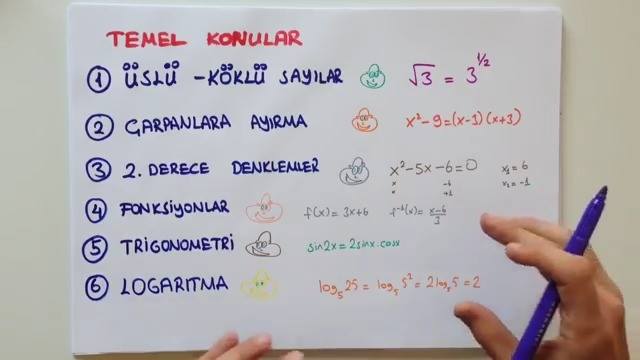 TEMEL KONULAR
1 ÜSLÜ - KÖKLÜ SAYILAR √3 = 3^1/2
2 ÇARPANLARA AYIRMA x²-9=(x-3)(x+3)
3 2. DERECE DENKLEMLER x²-5x-6=0 x₁=6
x -6 x₂=-1
x +1
4 FONKSİYONLAR f(x)=3x+6 f⁻¹(x)=(x-6)/3
5 TRİGONOMETRİ sin2x=2sinx.cosx
6 LOGARITMA log₅25 = log₅5² = 2log₅5 = 2